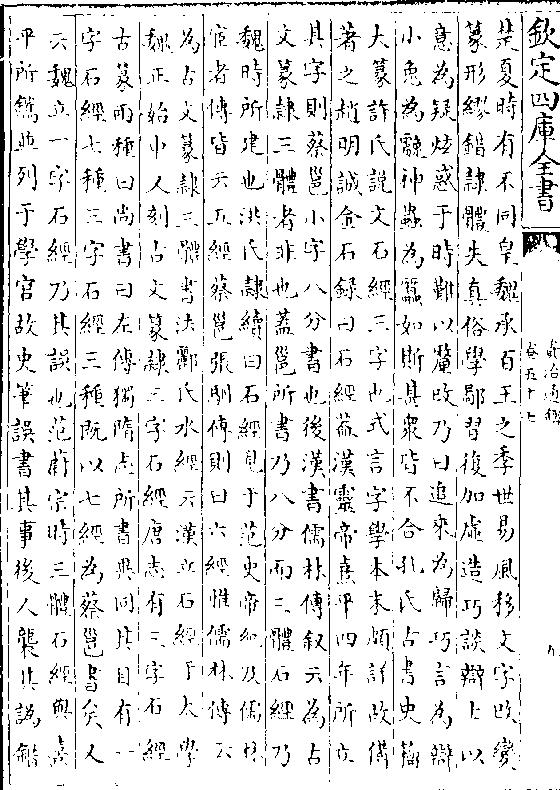 欽定四庫全書
資治通鑑
卷五十七
楚夏時有不同皇魏承百王之季世易風移文字改變
篆形繆錯隸體失真俗學鄙習復加虛造巧談辯士以
意為疑炫惑于時難以釐改乃曰追來為歸巧言為辯
小兔為䨲神蟲為蠶如斯甚衆皆不合孔氏古書史籀
大篆許氏說文石經三字也式言字學本末頗詳故備
著之趙明誠金石録曰石經葢漢靈帝熹平四年所立
其字則蔡邕小字八分書也後漢書儒林傳叙云為古
文篆隸三體者非也蓋邕所書乃八分而三體石經乃
魏時所建也洪氏隸續曰石經見于范史帝紀及儒林
宦者傳皆云五經蔡邕張馴傳則曰六經惟儒林傳云
為古文篆隸三體書法酈氏水經云漢立石經于太學
魏正始中又刻古文篆隸三字石經唐志有三字石經
古篆兩種曰尚書曰左傳獨隋志所書異同其目有一
字石經七種三字石經三種既以七經為蔡邕書矣又
云魏立一字石經乃其誤也范蔚宗時三體石經與熹
平所鐫並列于學官故史筆誤書其事後人襲其譌錯